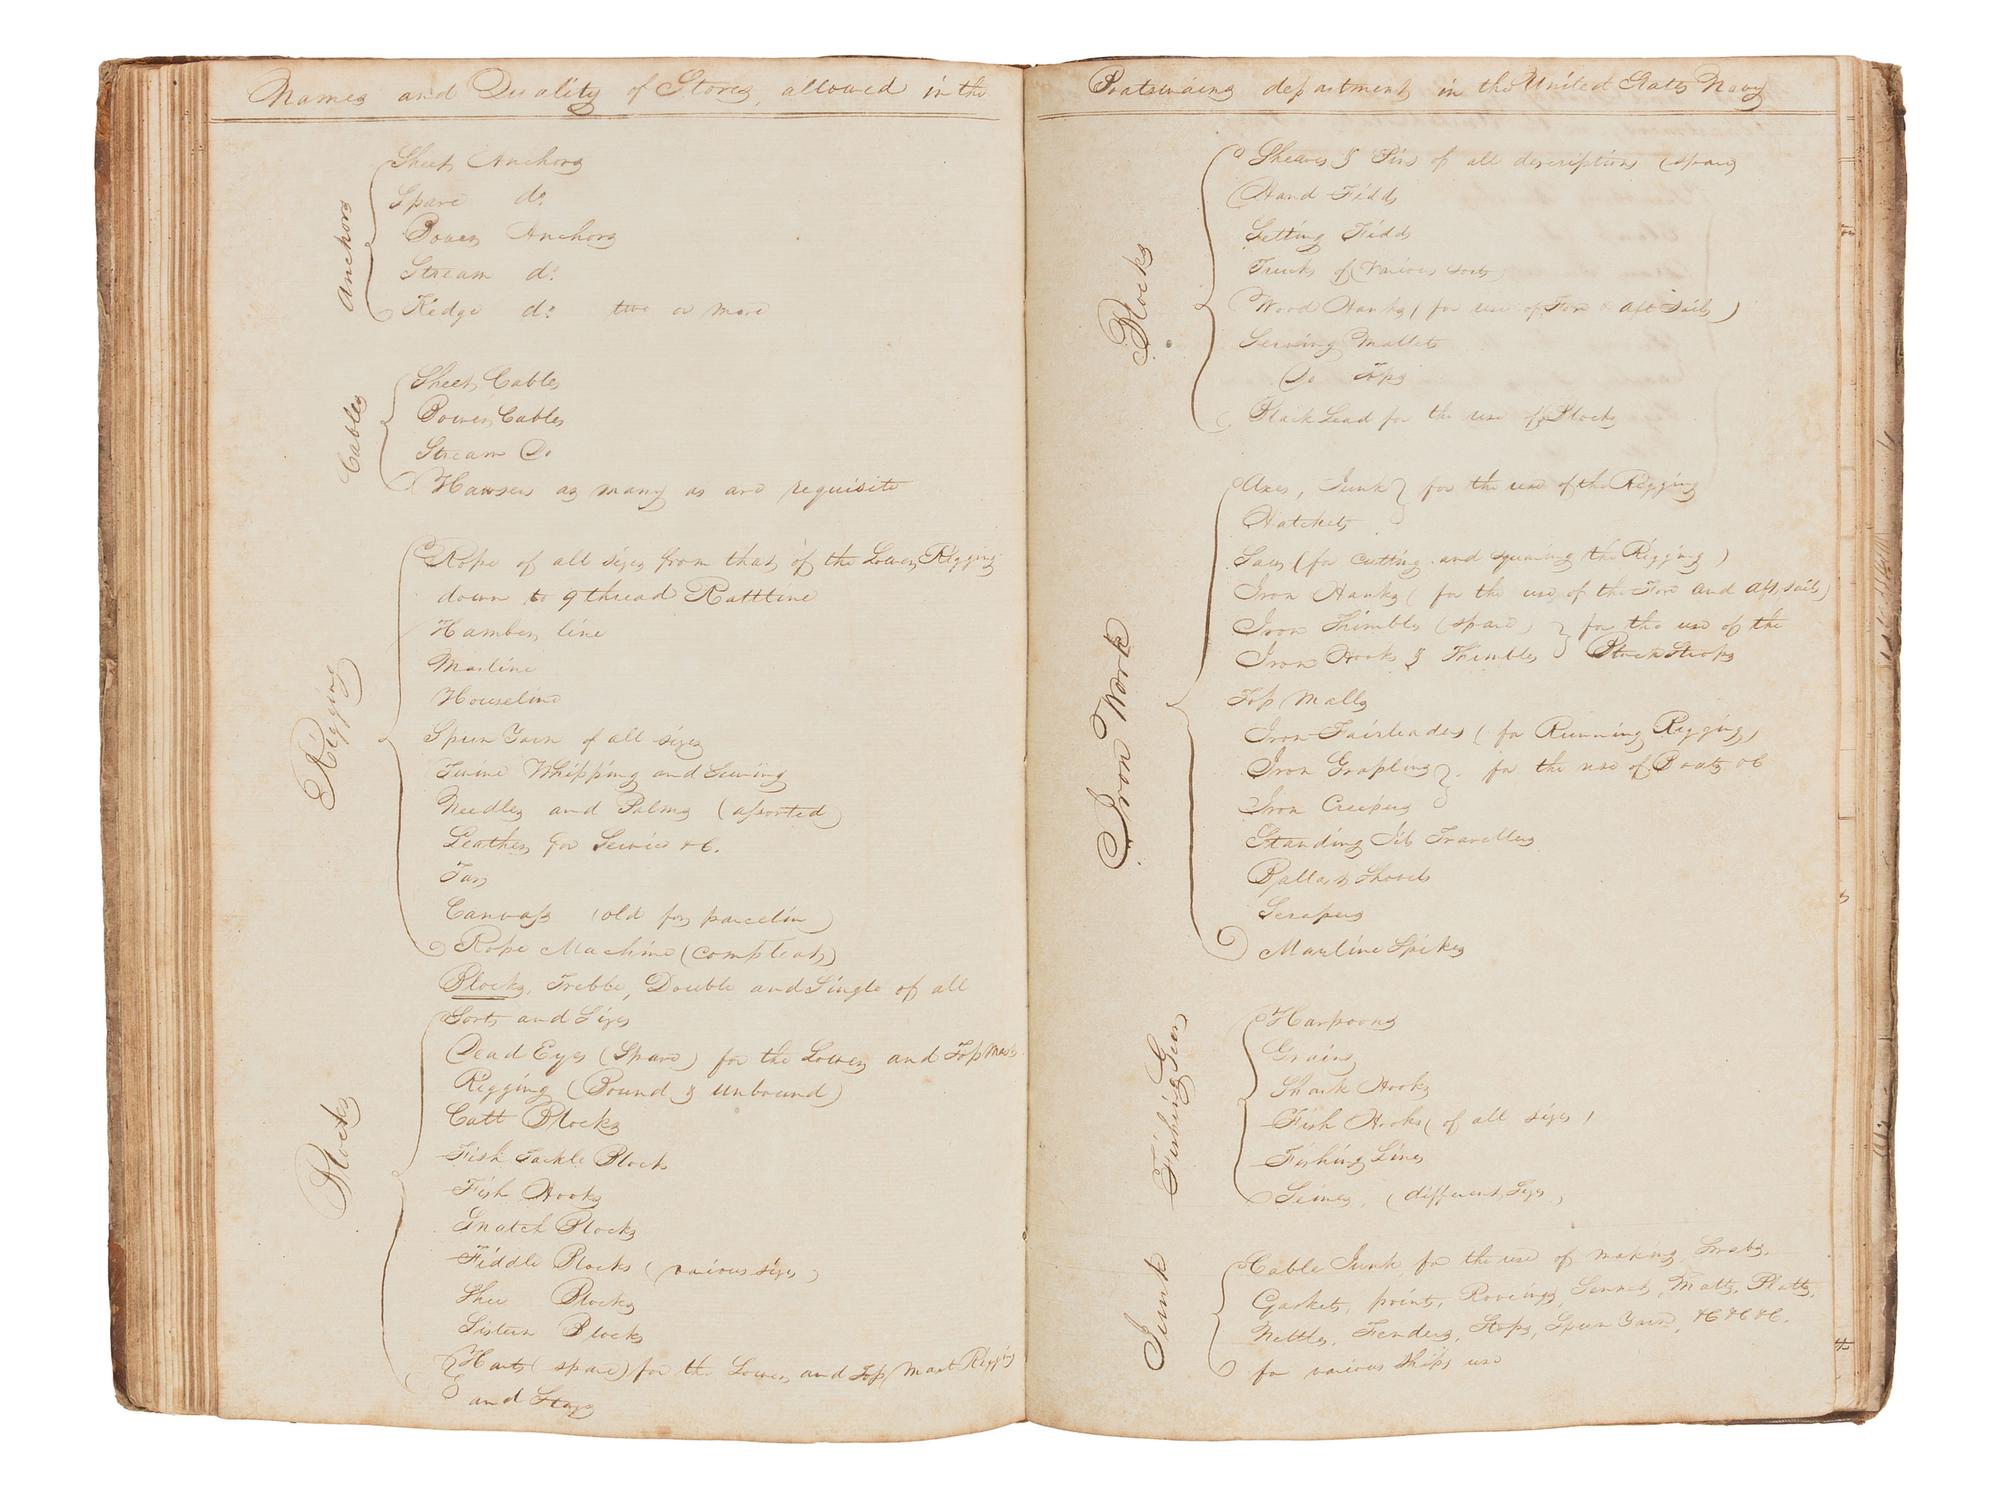 Names and Quality of Stores, allowed in the
Anchors
Sheet Anchors
Spare do
Bower Anchors
Stream do
Kedge do two or more
Cables
Sheet Cables
Bower Cables
Stream Do
Hawsers as many as are requisite
Rigging
Rope of all sizes from that of the Lower Rigging
down to 9 thread Rattline
Hamber line
Marline
Houseline
Spun Yarn of all sizes
Twine Whipping and Sewing
Needles and Palms (assorted)
Leather for Service &c.
Tar
Canvass (old for parcelin)
Rope Machine (compleat)
Blocks
Blocks, Trebble, Double and Single of all
Sorts and Sizes
Dead Eyes (Spare) for the Lower and Top Mast
Rigging (Bound & unbound)
Catt Blocks
Fish Tackle Block
Fish Hooks
Snatch Blocks
Fiddle Blocks (various sizes)
Shoe Blocks
Sistern Blocks
Harts (spare) for the Lower and Top Mast Rigging
and Stays
Boatswains department in the United States Navy
Blocks
Sheaves & Pins of all descriptions (spare)
Hand Fidds
Setting Fidds
Trucks of (various sorts)
Wood Hanks (for use of Fore & aft Sails)
Serving Mallets
Do Tops
Black Lead for the use of Blocks
Iron Work
Axes, Junk } for the use of the Rigging
Hatchets
Saws (for cutting and squaring the Rigging)
Iron Hanks (for the use of the Fore and aft sails)
Iron Thimbles (spare) } for the use of the
Iron Hooks & Thimbles } Block Strops
Top Malls
Iron Fairleaders (for Running Rigging)
Iron Grapling } for the use of Boats &c
Iron Creepers
Standing Jib Travellers
Ballast Shovels
Scrapers
Marline Spikes
Fishing Gear
Harpoons
Grains
Shark Hooks
Fish Hooks (of all sizes)
Fishing Lines
Seines, (different Sizes)
Junk
Cable Junk for the use of making Swabs,
Gaskets, points, Roveings, Sennet, Matts, Platts,
Nettles, Fenders, Stops, Spun Yarn, &c &c &c.
for various Ships use